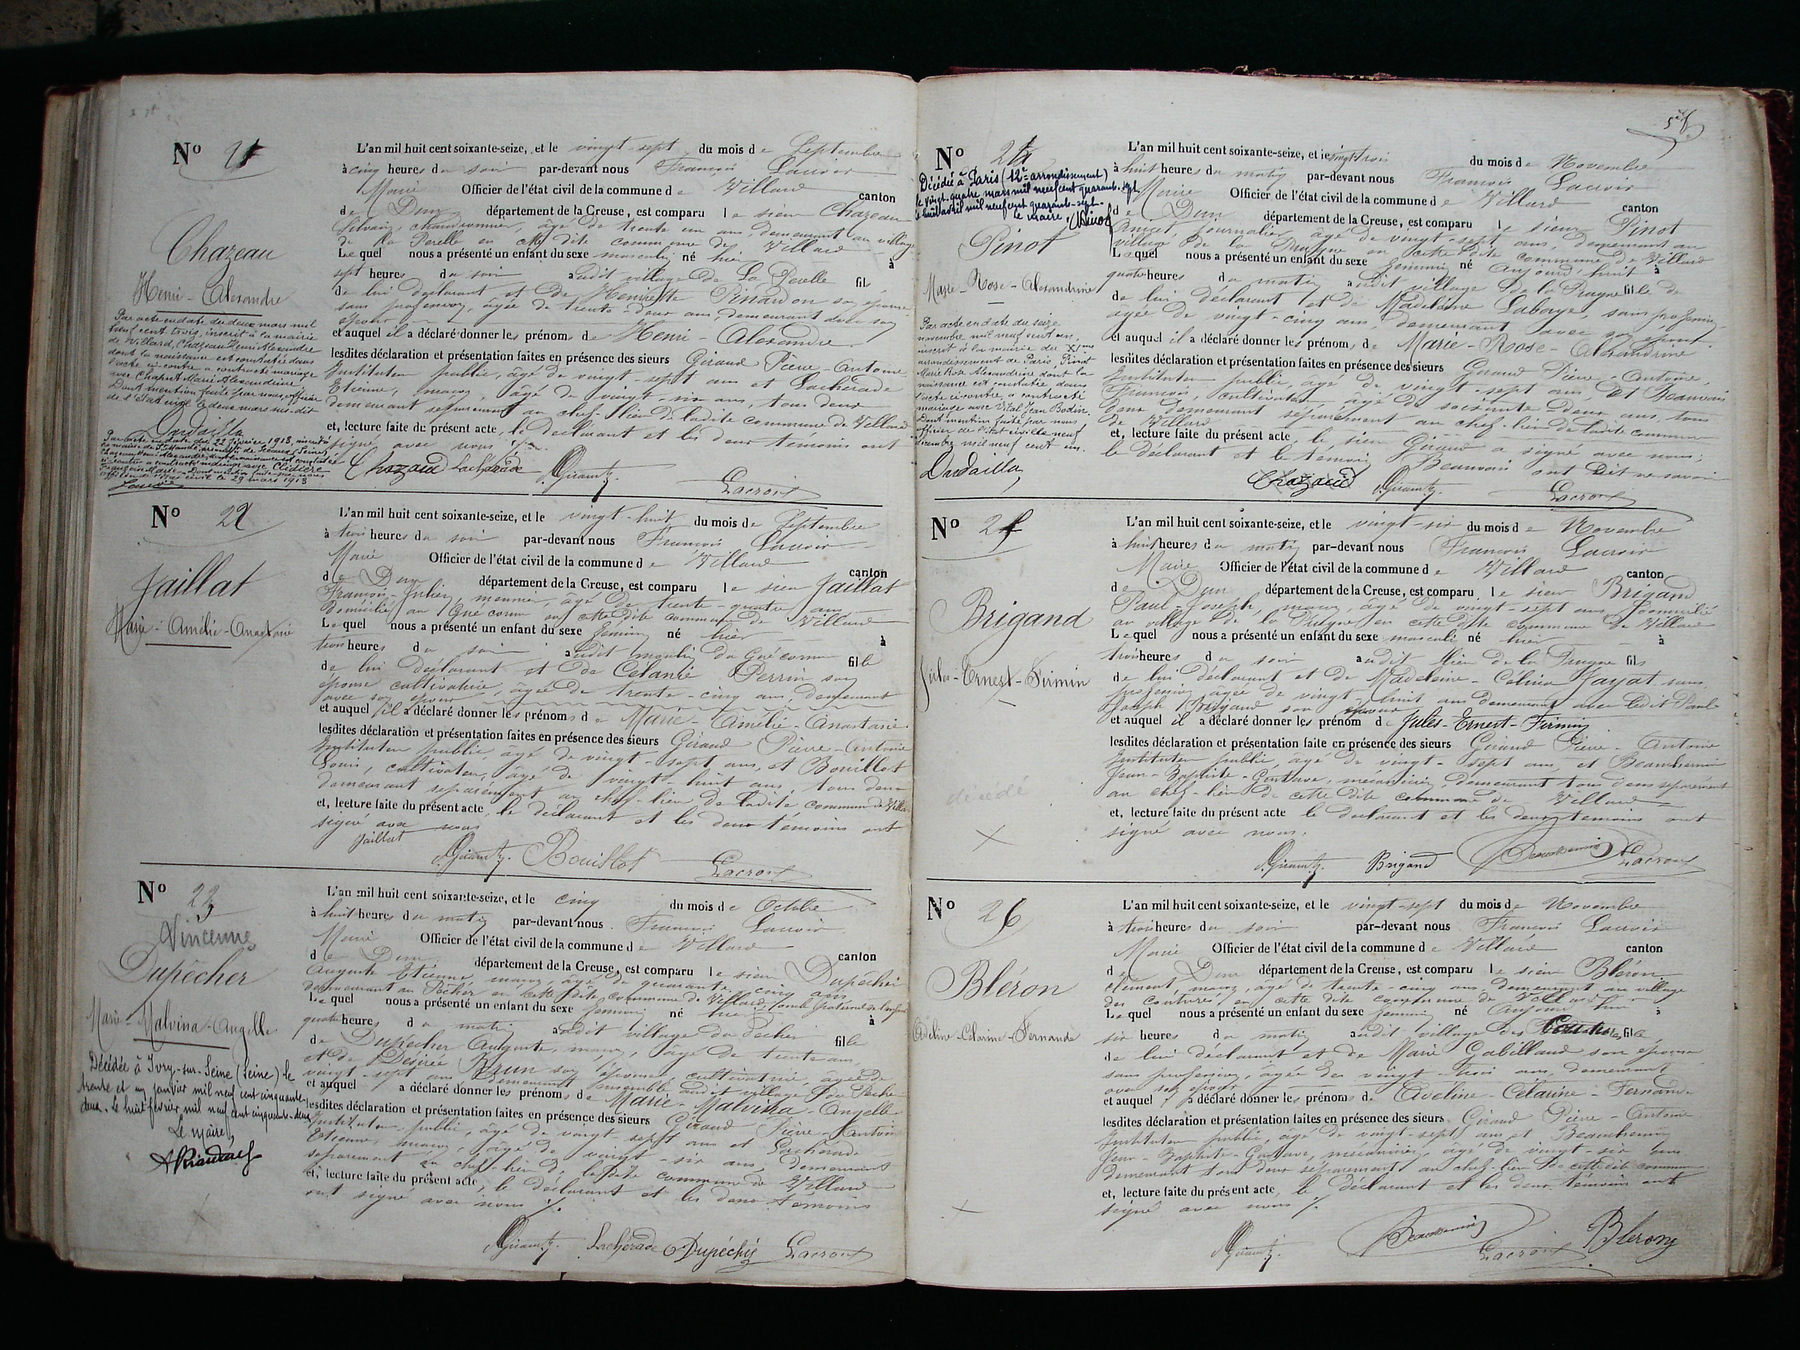 No 21
Chazeau
Henri - Alexandre
Par acte en date du deux mars mil
neuf cent trois, inscrit à la mairie
de Villard, Chazeau Henri Alexandre
dont la naissance est constatée dans
l'acte ci-contre a contracté mariage
avec Chaput Marie Alexandrine
Dont mention faite par nous, officier
de l'état civil le deux mars sus-dit
L'an mil huit cent soixante-seize, et le vingt-sept du mois de Septembre
à cinq heures du soir par-devant nous François Lacroix
Maire Officier de l'état civil de la commune de Villard canton
de Dun département de la Creuse, est comparu le sieur Chazeau
Silvain, âgé de trente un ans demeurant au village
de la en cette dite commune de Villard
Lequel nous a présenté un enfant du sexe masculin né hier à
sept heures du soir audit village de la fils
de lui déclarant et de Henriette Pinardon son épouse
sans profession, âgée de trente-deux ans demeurant avec son
époux
et auquel il a déclaré donner les prénoms de Henri - Alexandre
lesdites déclaration et présentation faites en présence des sieurs Giraud Pierre-Antoine
Instituteur public, âgé de vingt-sept ans et Lachérade
Etienne, maçon, âgé de vingt-six ans, tous deux
demeurant séparément au chef-lieu de ladite commune de Villard
et, lecture faite du présent acte, le déclarant et les deux témoins ont
signé avec nous
Chazaud Lachérade Giraud Lacroix
No 22
Jaillat
Marie - Amélie - Anastasie
L'an mil huit cent soixante-seize, et le vingt-huit du mois de Septembre
à trois heures du soir par-devant nous François Lacroix
Maire Officier de l'état civil de la commune de Villard
de Dun département de la Creuse, est comparu le sieur Jaillat canton
François-Julien, meunier, âgé de trente-quatre ans
domicilié au Guécornu en cette dite commune de Villard
Lequel nous a présenté un enfant du sexe féminin né hier à
trois heures du soir audit moulin du Guécornu fille
de lui déclarant et de Célanie Perrin son
épouse cultivatrice, âgée de trente-cinq ans, demeurant
avec son époux
et auquel il a déclaré donner les prénoms de Marie - Amélie - Anastasie
lesdites déclaration et présentation faites en présence des sieurs Giraud Pierre-Antoine
Instituteur public, âgé de vingt-sept ans, et Bouillot
Louis, cultivateur, âgé de vingt-huit ans, tous deux
demeurant séparément au chef-lieu de ladite commune de Villard
et, lecture faite du présent acte, le déclarant et les deux témoins ont
signé avec nous
Jaillat
Giraud Bouillot Lacroix
No 23
Vincenne
Dupêcher
Marie - Malvina - Angelle
Décédée à Ivry-sur-Seine (Seine) le
trente et un janvier mil neuf cent cinquante-
deux. Le huit février mil neuf cent cinquante-deux
Le maire,
L'an mil huit cent soixante-seize, et le cinq du mois de Octobre
à huit heures du matin par-devant nous François Lacroix
Maire Officier de l'état civil de la commune de Villard
de Dun département de la Creuse, est comparu le sieur Dupêcher canton
Auguste Etienne, maçon, âgé de quarante-cinq ans
demeurant au Pêcher en cette dite commune de Villard,
Lequel nous a présenté un enfant du sexe féminin né hier à
quatre heures du matin audit village du Pêcher fille
de Dupêcher Auguste, maçon, âgé de trente ans
et de Désirée Brun son épouse, cultivatrice, âgée de
vingt-sept ans demeurant ensemble audit village du Pêcher
et auquel a déclaré donner les prénoms de Marie - Malvina - Angelle
lesdites déclaration et présentation faites en présence des sieurs Giraud Pierre-Antoine
Instituteur public, âgé de vingt-sept ans et Lachérade
Etienne, maçon, âgé de vingt-six ans, demeurant
séparément au chef-lieu de ladite commune de Villard
et, lecture faite du présent acte, le déclarant et les deux témoins
ont signé avec nous
Giraud Lachérade Dupêcher Lacroix
No 24
Décédée à Paris (12e arrondissement)
le vingt quatre mars mil neuf cent quarante sept
le huit avril mil neuf cent quarante-sept.
le maire,
Pinot
Marie - Rose - Alexandrine
Par acte en date du seize
novembre mil neuf cent un,
inscrit à la mairie du XIme
arrondissement de Paris, Pinot
Marie Rose Alexandrine dont la
naissance est constatée dans
l'acte ci-contre, a contracté
mariage avec Vital Jean Bodin,
Dont mention faite par nous
officier de l'état civil le neuf
décembre mil neuf cent un.
L'an mil huit cent soixante-seize, et le vingt trois du mois de Novembre
à huit heures du matin par-devant nous François Lacroix
Maire Officier de l'état civil de la commune de Villard canton
de Dun département de la Creuse, est comparu le sieur Pinot
Amicet, journalier, âgé de vingt-sept ans, demeurant au
village de la Prugne en cette dite commune de Villard
Lequel nous a présenté un enfant du sexe féminin né aujourd'hui à
quatre heures du matin audit village de la Prugne fille de
de lui déclarant et de Madeleine Labaye, sans profession
âgée de vingt-cinq ans, demeurant avec son époux.
et auquel il a déclaré donner les prénoms de Marie - Rose - Alexandrine
lesdites déclaration et présentation faites en présence des sieurs Giraud Pierre-Antoine,
Instituteur public, âgé de vingt-sept ans, et Beauvais
François, cultivateur, âgé de soixante deux ans, tous
deux demeurant séparément au chef-lieu de ladite commune
de Villard
et, lecture faite du présent acte, le sieur Giraud a signé avec nous;
le déclarant et le témoin Beauvais ont dit ne savoir
Chazaud Giraud Lacroix
No 25
Brigand
Jules - Ernest - Firmin
décédé
L'an mil huit cent soixante-seize, et le vingt-six du mois de Novembre
à huit heures du matin par-devant nous François Lacroix
Maire Officier de l'état civil de la commune de Villard
de Dun département de la Creuse, est comparu le sieur Brigand canton
Paul-Joseph, maçon, âgé de vingt-sept ans domicilié
au village de la Prugne en cette dite commune de Villard
Lequel nous a présenté un enfant du sexe masculin né hier à
trois heures du soir audit lieu de la Prugne fils
de lui déclarant et de Madeleine - Célina Jayat sans
profession âgée de vingt-huit ans demeurant avec ledit Paul
Joseph Brigand son époux
et auquel il a déclaré donner les prénom de Jules - Ernest - Firmin
lesdites déclaration et présentation faite en présence des sieurs Giraud Pierre - Antoine
Instituteur public, âgé de vingt-sept ans, et Beauchemin
Jean-Baptiste-Gustave, mécanicien, demeurant tous deux séparément
au chef-lieu de cette dite commune de Villard
et, lecture faite du présent acte le déclarant et les deux témoins ont
signé avec nous.
Giraud Brigand Beauchemin Lacroix
No 26
Bléron
Adeline - Célarine - Fernande
L'an mil huit cent soixante-seize, et le vingt-sept du mois de Novembre
à trois heures du soir par-devant nous François Lacroix
Maire Officier de l'état civil de la commune de Villard canton
de Dun département de la Creuse, est comparu le sieur Bléron
Clément, maçon, âgé de trente-cinq ans, demeurant au village
des Coutures en cette dite commune de Villard
Lequel nous a présenté un enfant du sexe féminin né aujourd'hui à
six heures du matin audit village des Coutures fille
de lui déclarant et de Marie Gabillaud son épouse
sans profession, âgée de vingt-trois ans, demeurant
avec son époux
et auquel il a déclaré donner les prénoms de Adeline - Célarine - Fernande
lesdites déclaration et présentation faites en présence des sieurs Giraud Pierre - Antoine
Instituteur public, âgé de vingt-sept ans et Beauchemin
Jean-Baptiste-Gustave, mécanicien, âgé de vingt-six ans
demeurant tous deux séparément au chef-lieu de cette dite commune
et, lecture faite du présent acte, le déclarant et les deux témoins ont
signé avec nous
Giraud Beauchemin Lacroix Bleron